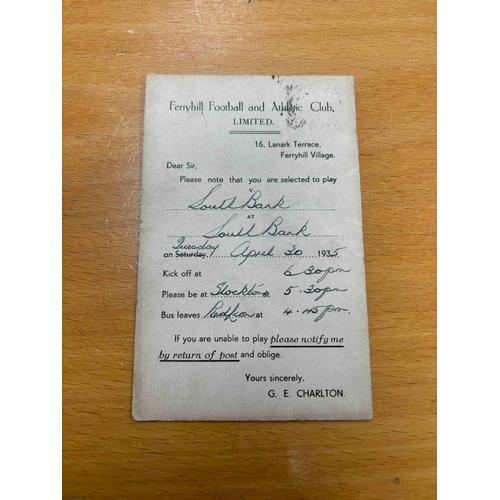 Ferryhill Football and Athletic Club,
LIMITED.
16, Lanark Terrace,
Ferryhill Village.
Dear Sir,
Please note that you are selected to play
v.
South Bank
AT
South Bank
Tuesday
on Saturday, April 30 1935
Kick off at 6.30pm
Please be at Stockton at 5.30pm
Bus leaves at 4.45pm.
If you are unable to play please notify me
by return of post and oblige.
Yours sincerely,
G. E. CHARLTON.